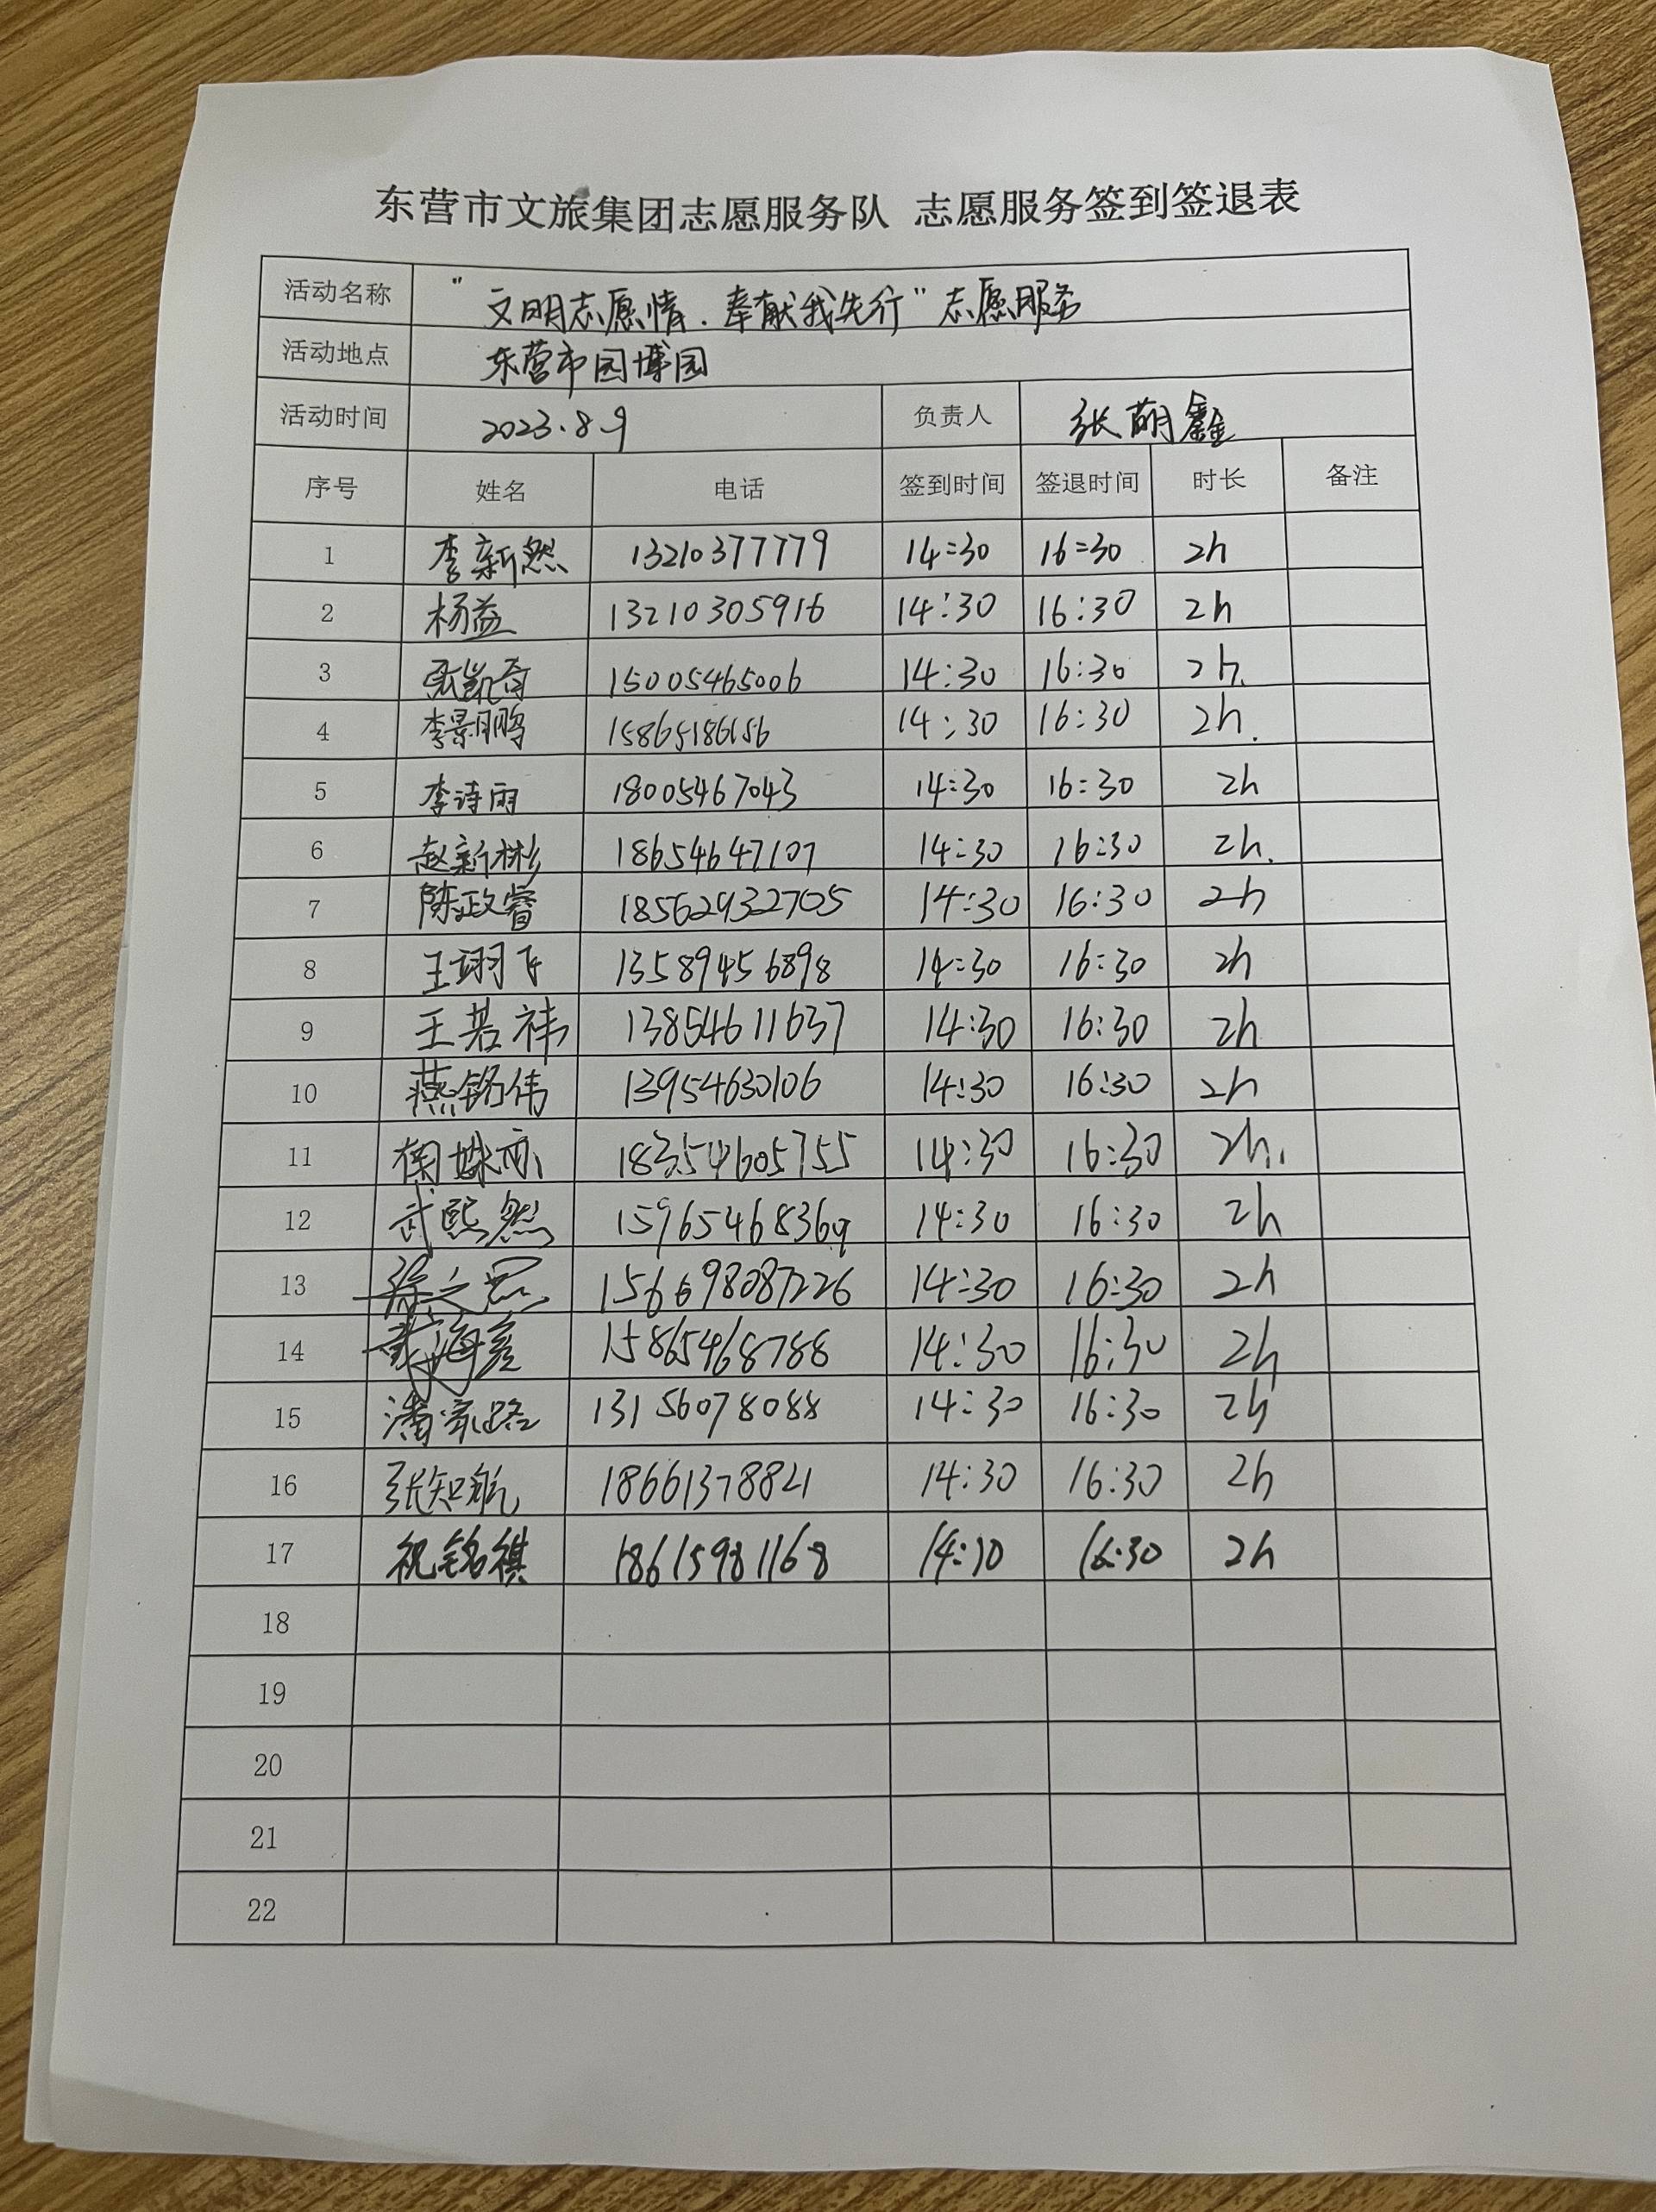 东营市文旅集团志愿服务队 志愿服务签到签退表
活动名称 "文明志愿情.奉献我先行"志愿服务
活动地点 东营市园博园
活动时间 2023.8.9 负责人 张萌鑫
序号 姓名 电话 签到时间 签退时间 时长 备注
1 李新然 13210377779 14:30 16:30 2h
2 杨益 13210305916 14:30 16:30 2h
3 张凯奇 15005465006 14:30 16:30 2h.
4 李景鹏 15865186156 14:30 16:30 2h.
5 李诗雨 18005467043 14:30 16:30 2h
6 赵新彬 18654647107 14:30 16:30 2h.
7 陈政睿 18562932705 14:30 16:30 2h
8 王翊飞 13589456898 14:30 16:30 2h
9 王若祎 13854611637 14:30 16:30 2h
10 燕铭伟 13954630106 14:30 16:30 2h
11 18354605755 14:30 16:30 2h.
12 武熙然 15965468369 14:30 16:30 2h
13 14:30 16:30 2h
14 15865468788 14:30 16:30 2h
15 潘家路 13156078088 14:30 16:30 2h
16 张知航 18661378821 14:30 16:30 2h
17 祝铭祺 18615981168 14:30 16:30 2h
18
19
20
21
22